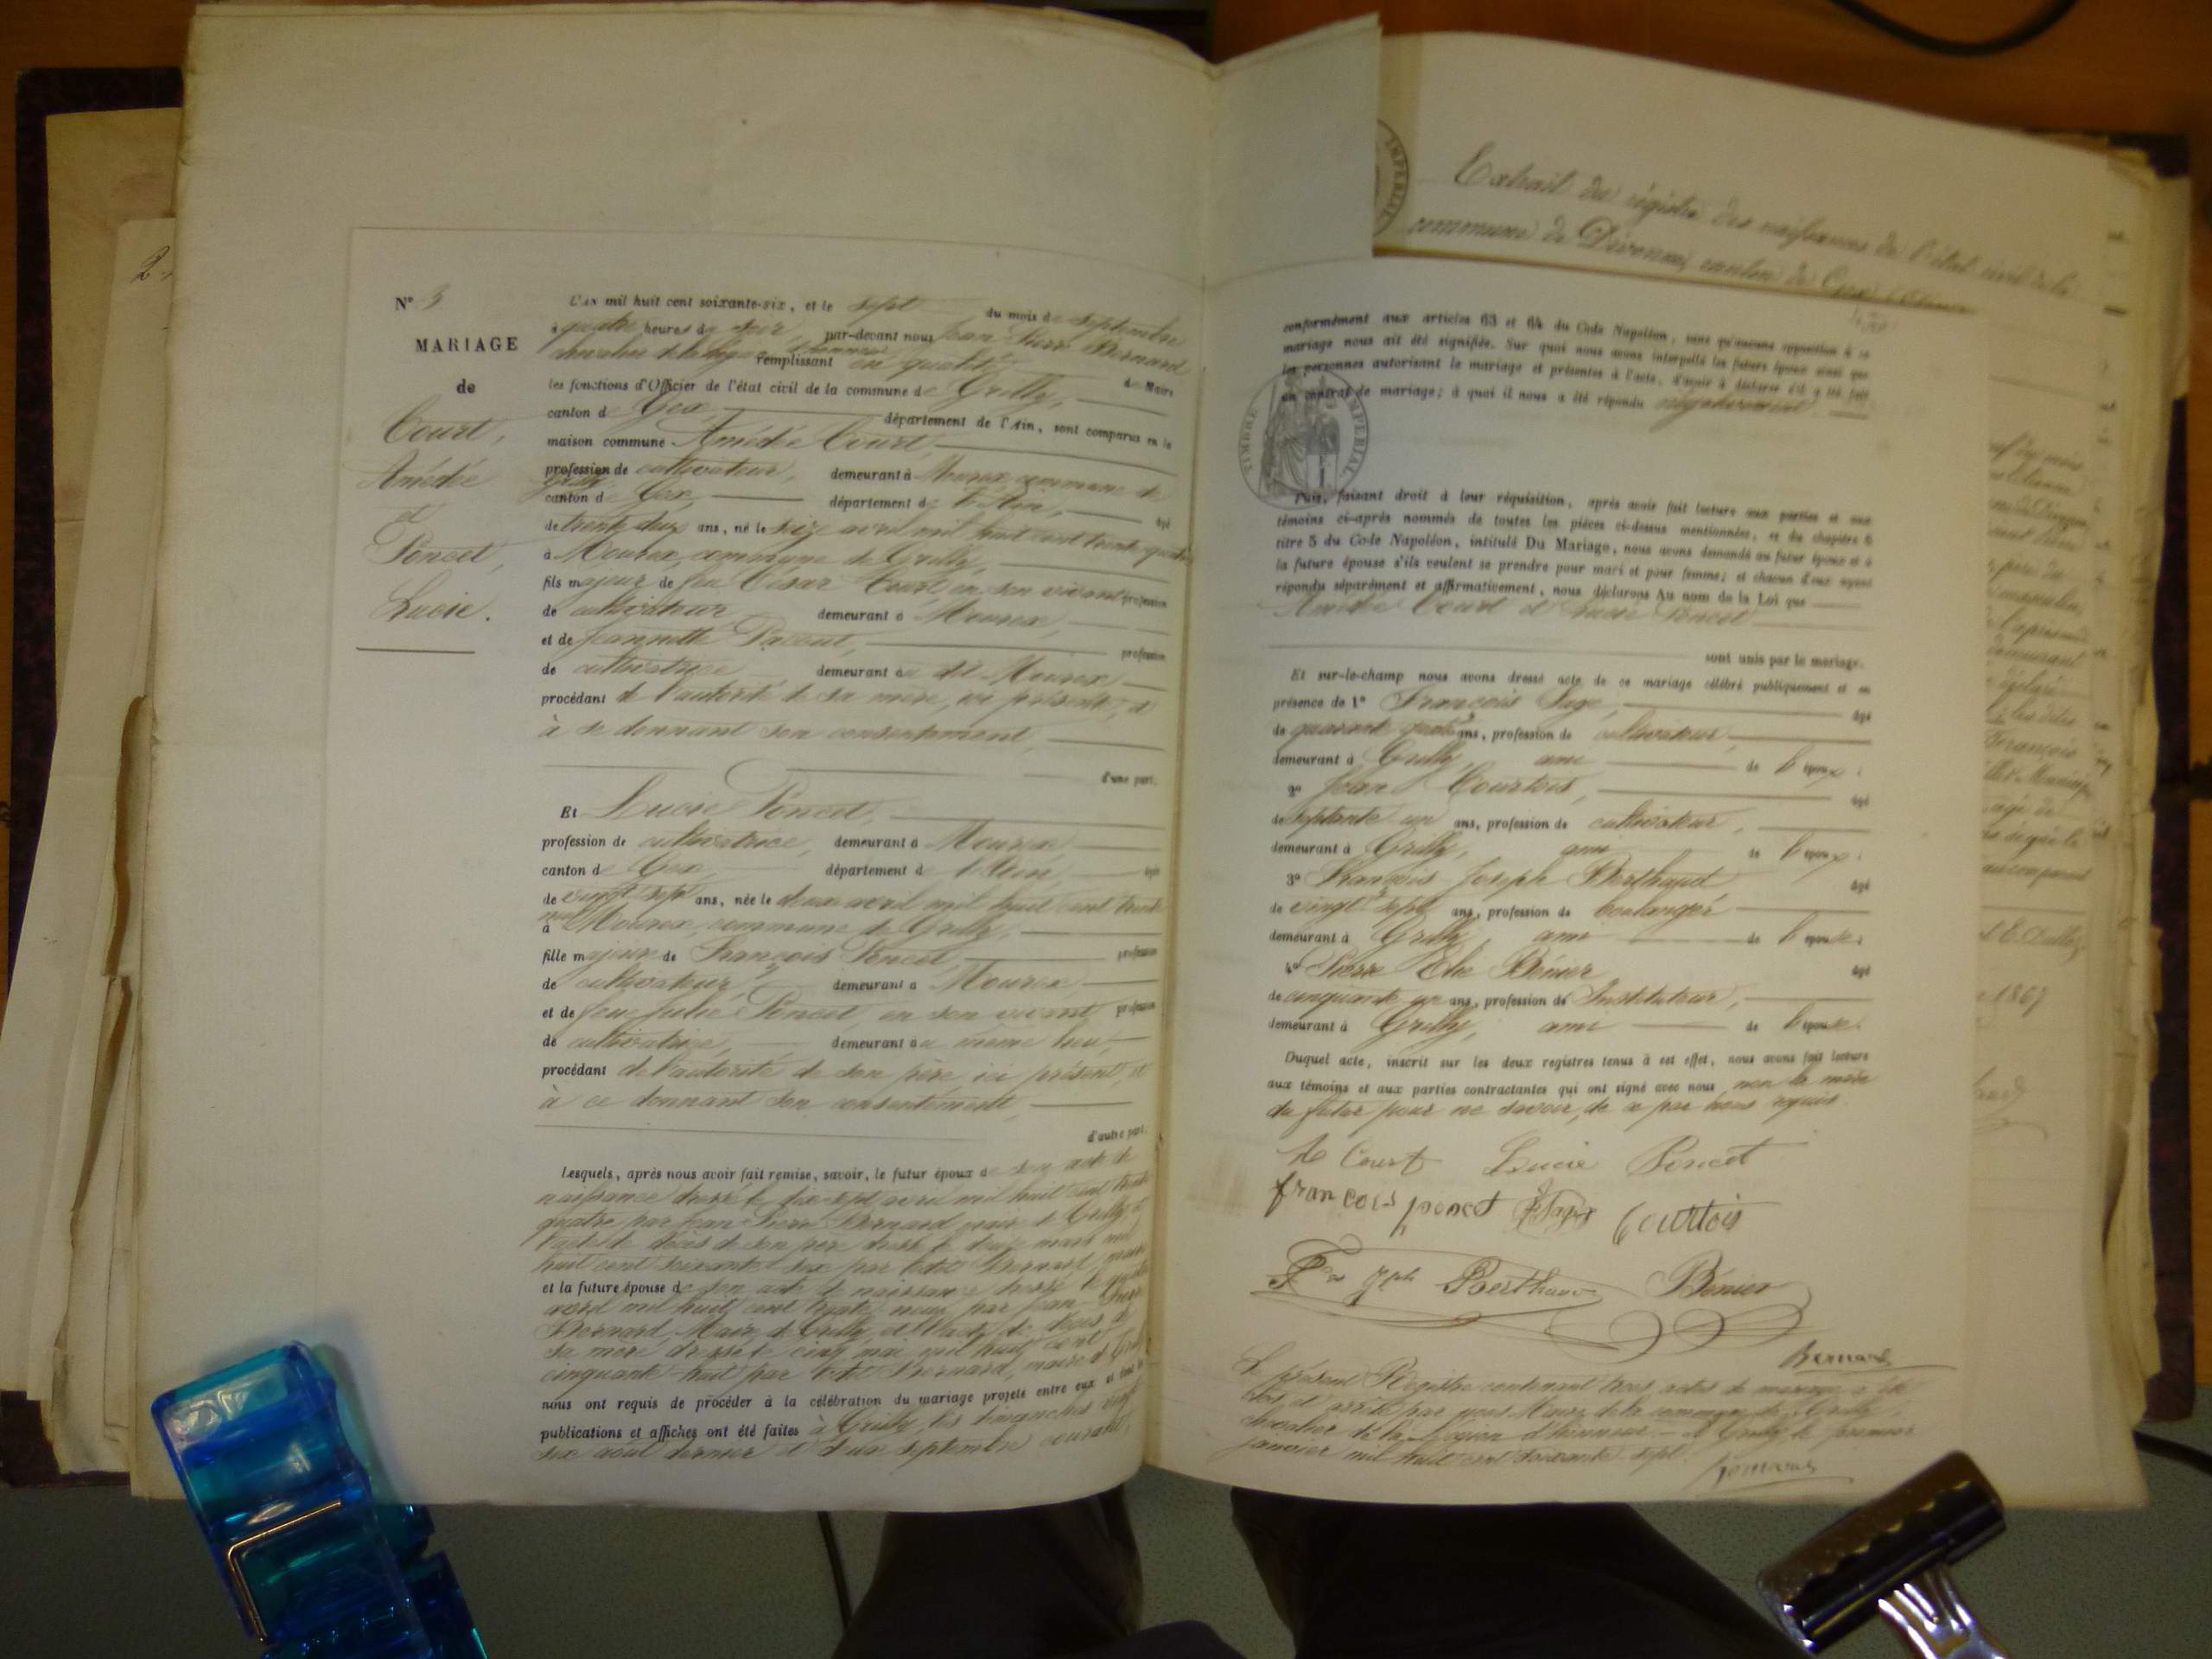 N° 3
MARIAGE
de
Court,
Amédée
et
Poncet,
Lucie.
L'AN mil huit cent soixante-six, et le sept du mois de septembre
à quatre heures du soir, par-devant nous Jean Pierre Bernard
chevalier de la légion d'honneur remplissant en qualité de Maire
les fonctions d'Officier de l'état civil de la commune de Grilly,
canton de Gex, département de l'Ain, sont comparus en la
maison commune Amédée Court,
profession de cultivateur, demeurant à Mourex commune de
Grilly
canton de Gex, département de l'Ain, âgé
de trente deux ans, né le seize avril mil huit cent trente quatre
à Mourex, commune de Grilly,
fils majeur de feu César Court, en son vivant profession
de cultivateur demeurant à Mourex,
et de Jeannette profession
de cultivatrice demeurant au dit Mourex
procédant de l'autorité de sa mère, ici présente, et
à ce donnant son consentement,
d'une part.
Et Lucie Poncet,
profession de cultivatrice, demeurant à Mourex
canton de Gex, département de l'Ain, âgée
de vingt sept ans, née le deux avril mil huit cent trente
neuf
à Mourex, commune de Grilly,
fille majeure de François Poncet, profession
de cultivateur, demeurant à Mourex
et de feue Julie Poncet, en son vivant profession
de cultivatrice, demeurant au même lieu,
procédant de l'autorité de son père, ici présent, et
à ce donnant son consentement,
d'autre part.
Lesquels, après nous avoir fait remise, savoir, le futur époux de son acte de
naissance dressé le dix-sept avril mil huit cent trente
quatre par Jean-Pierre Bernard maire de Grilly, et
l'acte de décès de son père dressé le douze mars mil
huit cent soixante six par ledit Bernard, maire
et la future épouse de son acte de naissance dressé le quatre
avril mil huit cent trente neuf par Jean Pierre
Bernard, Maire de Grilly et l'acte de décès de
sa mère dressé le cinq mai mil huit cent
cinquante huit par ledit Bernard, maire d
nous ont requis de procéder à la célébration du mariage projeté entre eux et dont les
publications et affiches ont été faites à Grilly, les dimanches vingt
six août dernier et deux septembre courant,
IMPERIAL
Extrait du régistre des naissances de l'état civil de la
commune de Divonne, canton de Gex
conformément aux articles 63 et 64 du Code Napoléon, sans qu'aucune opposition à ce
mariage nous ait été signifiée. Sur quoi nous avons interpellé les futurs époux ainsi que
les personnes autorisant le mariage et présentes à l'acte, d'avoir à déclarer s'il a été fait
un contrat de mariage; à quoi il nous a été répondu négativement
TIMBRE IMPERIAL
Puis, faisant droit à leur réquisition, après avoir fait lecture aux parties et aux
témoins ci-après nommés de toutes les pièces ci-dessus mentionnées, et du chapitre 6
titre 5 du Code Napoléon, intitulé Du Mariage, nous avons demandé au futur époux et à
la future épouse s'ils veulent se prendre pour mari et pour femme; et chacun d'eux ayant
répondu séparément et affirmativement, nous déclarons Au nom de la Loi que
Amédée Court et Lucie Poncet
sont unis par le mariage.
Et sur-le-champ nous avons dressé acte de ce mariage célébré publiquement et en
présence de 1° François Page, âgé
de quarante quatre ans, profession de cultivateur,
demeurant à Grilly ami de l'époux;
2° Jean Courtois, âgé
de septante un ans, profession de cultivateur,
demeurant à Grilly, ami de l'époux;
3° François Joseph Berthaud âgé
de vingt sept ans, profession de boulanger
demeurant à Grilly, ami de l'épouse;
4° Pierre Elie Bénier âgé
de cinquante un ans, profession de Instituteur,
demeurant à Grilly, ami de l'épouse.
Duquel acte, inscrit sur les deux registres tenus à cet effet, nous avons fait lecture
aux témoins et aux parties contractantes qui ont signé avec nous non la mère
du futur pour ne savoir, de ce par nous requis.
Court Lucie Poncet
francois poncet Courtois
Berthaud Bénier
Bernard
Le présent Registre contenant trois actes de mariage a été
clos et arrêté par nous Maire de la commune de Grilly,
chevalier de la Légion d'honneur. - A Grilly le premier
janvier mil huit cent soixante-sept.
Bernard
1867